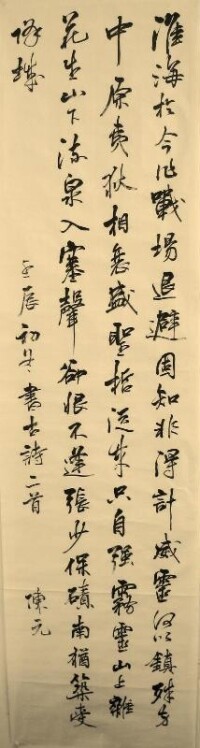 淮海於今作戰場退避固知非得計威靈何以鎮殊方
中原夷狄相衰盛聖哲從來只自強霧靈山上雜
花生山下流泉入塞聲卻恨不逢張少保磧南猶築受
降城
壬辰初冬書古詩二首 陳元